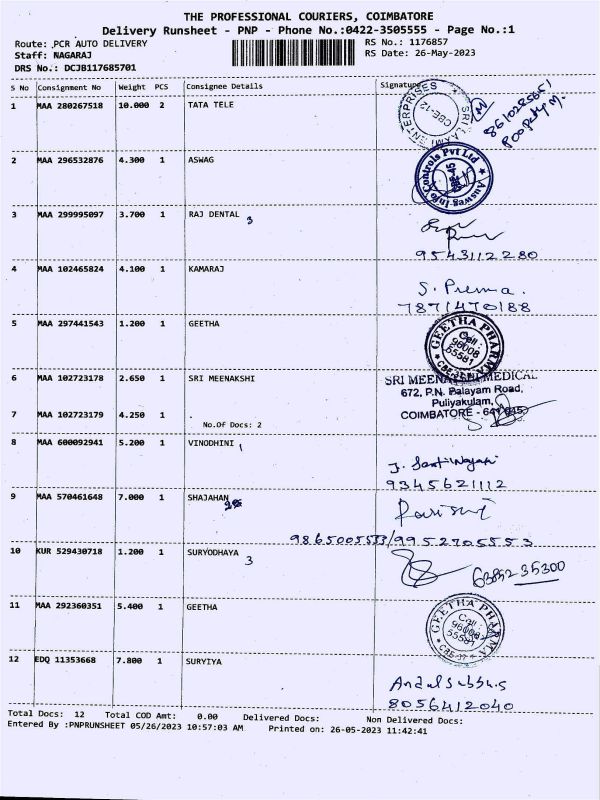 THE PROFESSIONAL COURIERS, COIMBATORE
Delivery Runsheet - PNP - Phone No.:0422-3505555 - Page No.:1
Route: ,PCR AUTO DELIVERY RS No.: 1176857
Staff: NAGARAJ RS Date: 26-May-2023
DRS No.: DCJB117685701
S No Consignment No Weight PCS Consignee Details Signature
1 MAA 280267518 10.000 2 TATA TELE
ENTERPRISES SRI LAXMI CBE-12
8610285651
2 MAA 296532876 4.300 1 ASWAG
Ausweg Info Controls Pvt Ltd CBE-45
3 MAA 299995097 3.700 1 RAJ DENTAL 3
9543112280
4 MAA 102465824 4.100 1 KAMARAJ
S. Prema.
7871470188
5 MAA 297441543 1.200 1 GEETHA
GEETHA PHARMA Cell: 96008 55581
6 MAA 102723178 2.650 1 SRI MEENAKSHI
SRI MEENAKSHI MEDICAL
672, P.N. Palayam Road,
Puliyakulam,
7 MAA 102723179 4.250 1
COIMBATORE - 641 045
No.Of Docs: 2
8 MAA 600092941 5.200 1 VINODHINI 1
9345621112
9 MAA 570461648 7.000 1 SHAJAHAN
9865005533/9952705553
10 KUR 529430718 1.200 1 SURYODHAYA 3
6385235300
11 MAA 292360351 5.400 1 GEETHA
GEETHA PHARMA Cell: 96008 55581
12 EDQ 11353668 7.800 1 SURYIYA
8056412040
Total Docs: 12 Total COD Amt: 0.00 Delivered Docs: Non Delivered Docs:
Entered By :PNPRUNSHEET 05/26/2023 10:57:03 AM Printed on: 26-05-2023 11:42:41